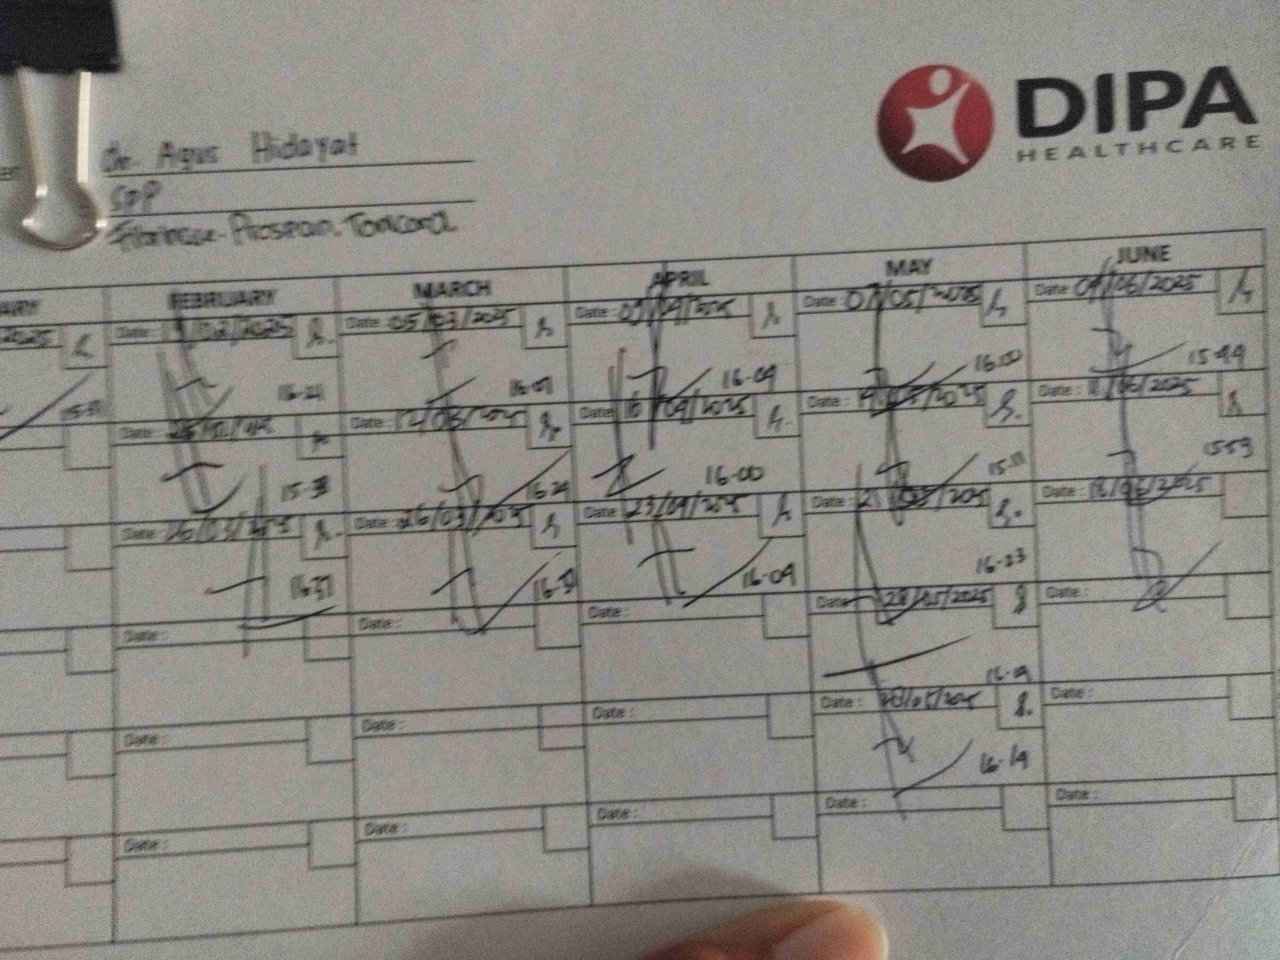 DIPA
HEALTHCARE
dr. Agus Hidayat
SpP
Prospan.
ARY FEBRUARY MARCH APRIL MAY JUNE
2025 Date: Date: 05/03/2025 Date: 09/04/2025 Date: 07/05/2025 Date: 04/06/2025
16-21 16-07 16-09 16.00 15-44
Date: Date: 12/03/2025 Date: 16/04/2025 Date: Date: 11/06/2025
15-38 16-29 16-00 15-11 1553
Date: 26/03/2025 Date: 26/03/2025 Date: 23/04/2025 Date: 21/05/2025 Date: 18/06/2025
16-37 16-09 16-23
Date: Date: Date: Date: 28/05/2025 Date:
Date: Date: Date: Date: Date:
16-19
Date: Date: Date: Date: Date: